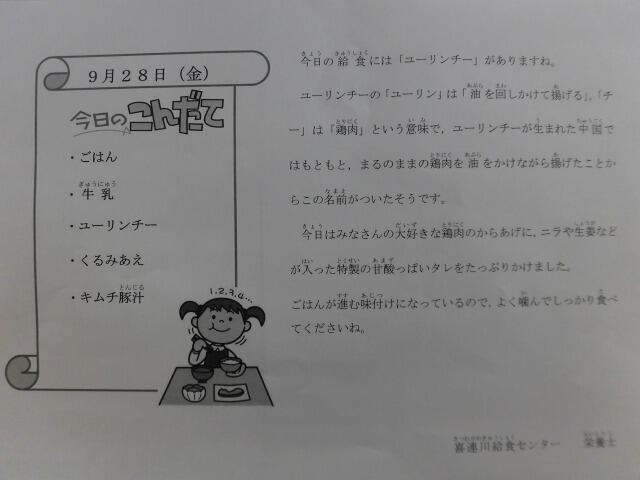 9月28日（金）
今日のこんだて
・ごはん
・牛乳
・ユーリンチー
・くるみあえ
・キムチ豚汁
1.2.3.4…
今日の給食には「ユーリンチー」がありますね。
ユーリンチーの「ユーリン」は「油を回しかけて揚げる」，「チ
ー」は「鶏肉」という意味で，ユーリンチーが生まれた中国で
はもともと，まるのままの鶏肉を油をかけながら揚げたことか
らこの名前がついたそうです。
今日はみなさんの大好きな鶏肉のからあげに，ニラや生姜など
が入った特製の甘酸っぱいタレをたっぷりかけました。
ごはんが進む味付けになっているので，よく噛んでしっかり食べ
てくださいね。
喜連川給食センター　栄養士